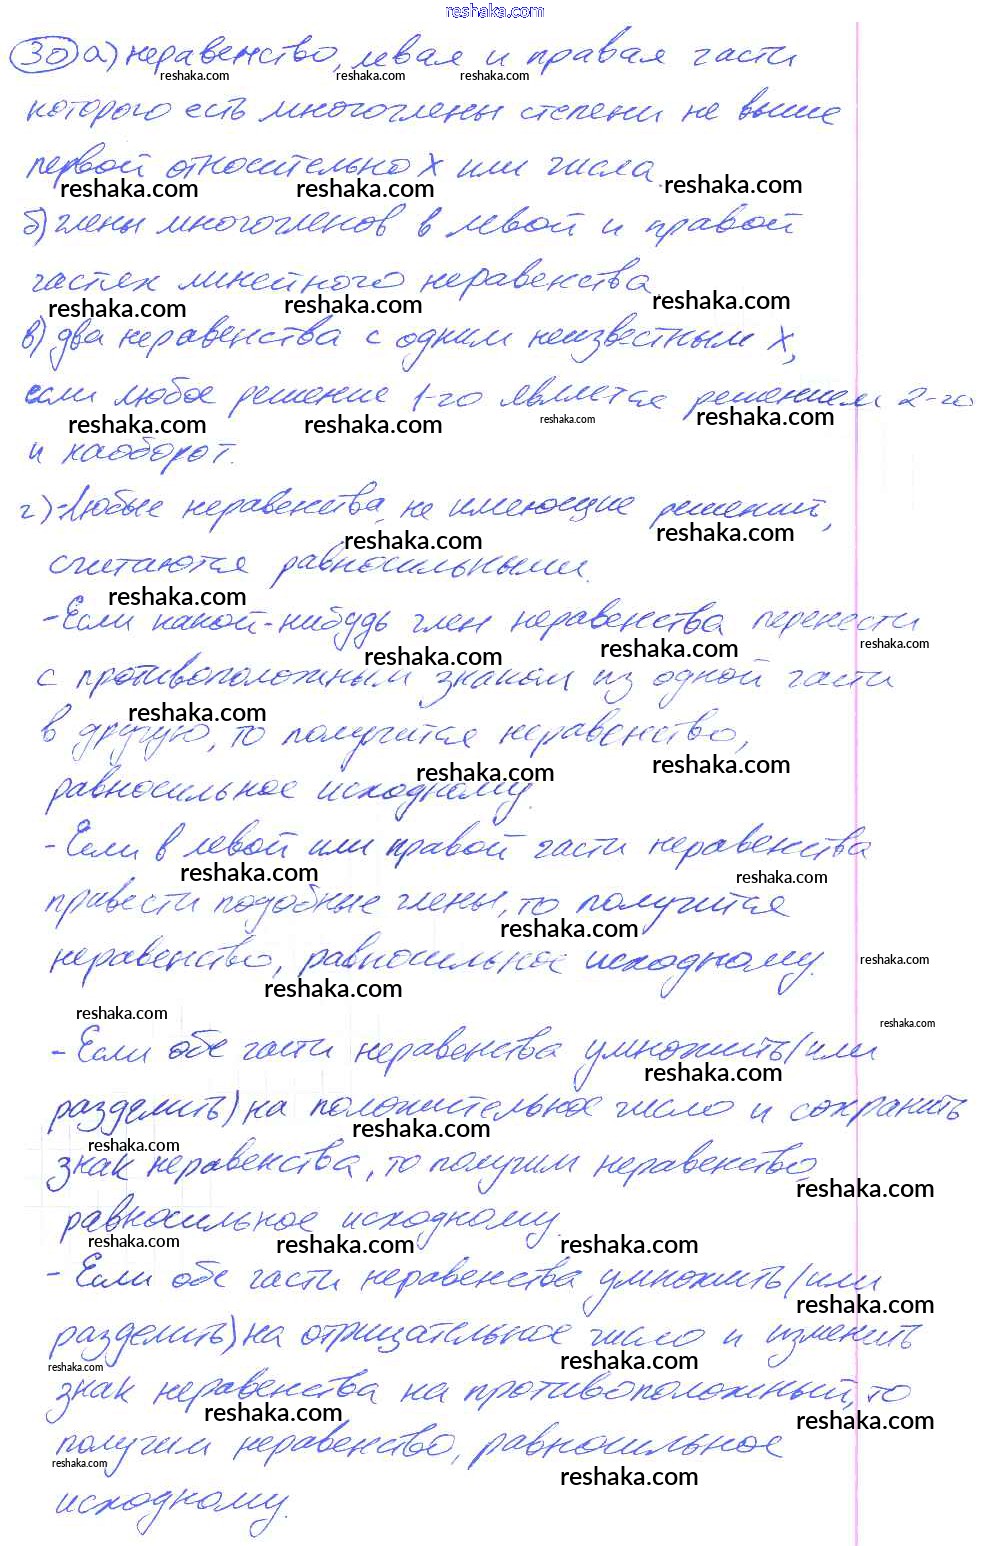 reshaka.com
30 а) неравенство, левая и правая части
reshaka.com reshaka.com reshaka.com
которого есть многочлены степени не выше
первой относительно x или числа
reshaka.com reshaka.com reshaka.com
б) члены многочленов в левой и правой
частях линейного неравенства
reshaka.com reshaka.com reshaka.com
в) два неравенства с одним неизвестным x,
если любое решение 1-го является решением 2-го
reshaka.com reshaka.com reshaka.com reshaka.com
и наоборот.
г) -Любые неравенства, не имеющие решений,
reshaka.com reshaka.com
считаются равносильными.
reshaka.com
-Если какой-нибудь член неравенства перенести
reshaka.com reshaka.com reshaka.com
с противоположным знаком из одной части
reshaka.com
в другую, то получится неравенство,
reshaka.com reshaka.com
равносильное исходному.
-Если в левой или правой части неравенства
reshaka.com reshaka.com
привести подобные члены, то получится
reshaka.com
неравенство, равносильное исходному.
reshaka.com reshaka.com
reshaka.com reshaka.com
-Если обе части неравенства умножить (или
reshaka.com
разделить) на положительное число и сохранить
reshaka.com reshaka.com
знак неравенства, то получим неравенство
reshaka.com
равносильное исходному.
reshaka.com reshaka.com reshaka.com
-Если обе части неравенства умножить (или
reshaka.com
разделить) на отрицательное число и изменить
reshaka.com reshaka.com
знак неравенства на противоположный, то
reshaka.com reshaka.com
получим неравенство, равносильное
reshaka.com reshaka.com
исходному.